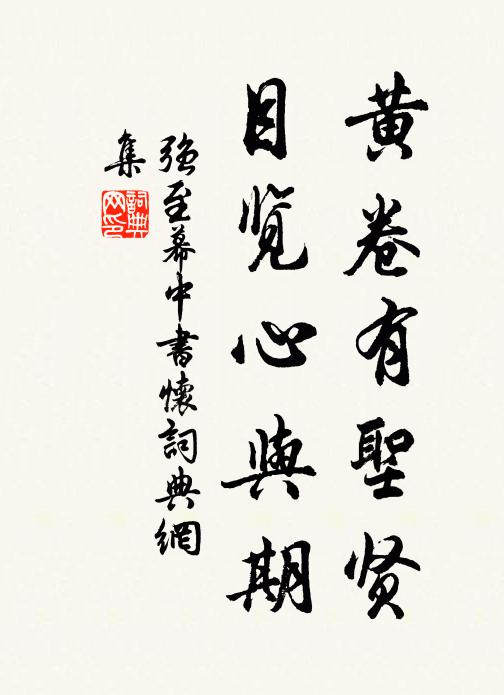 黄卷有聖贤
目览心與期
强至幕中書懷詞典網
集
詞典網印